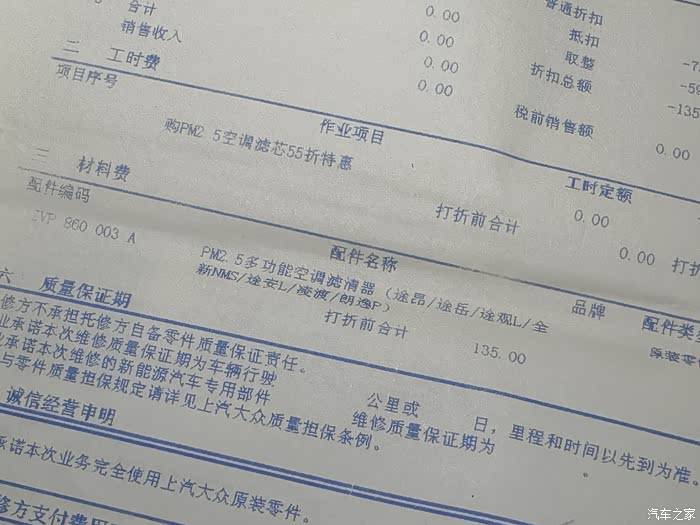 合计 0.00 普通折扣
销售收入 0.00 抵扣
二 工时费 0.00 取整
项目序号 0.00 折扣总额
-135
作业项目 税前销售额 0.00
购PM2 5空调滤芯55折特惠
工时定额
三 材料费 打折前合计 0.00
配件编码 配件名称 0.00 打折
VP 860 003 A PM2.5多功能空调滤清器（途昂/途岳/途观L/全 品牌 配件类
新NMS/途安L/凌渡/朗逸P） 原装零
六 质量保证期 打折前合计 135.00
修方不承担托修方自备零件质量保证责任。
业承诺本次维修质量保证期为车辆行驶 公里或 日，里程和时间以先到为准。
承诺本次维修的新能源汽车专用部件 维修质量保证期为 。
与零件质量担保规定请详见上汽大众质量担保条例。
诚信经营申明
承诺本次业务完全使用上汽大众原装零件。
修方支付费用
汽车之家